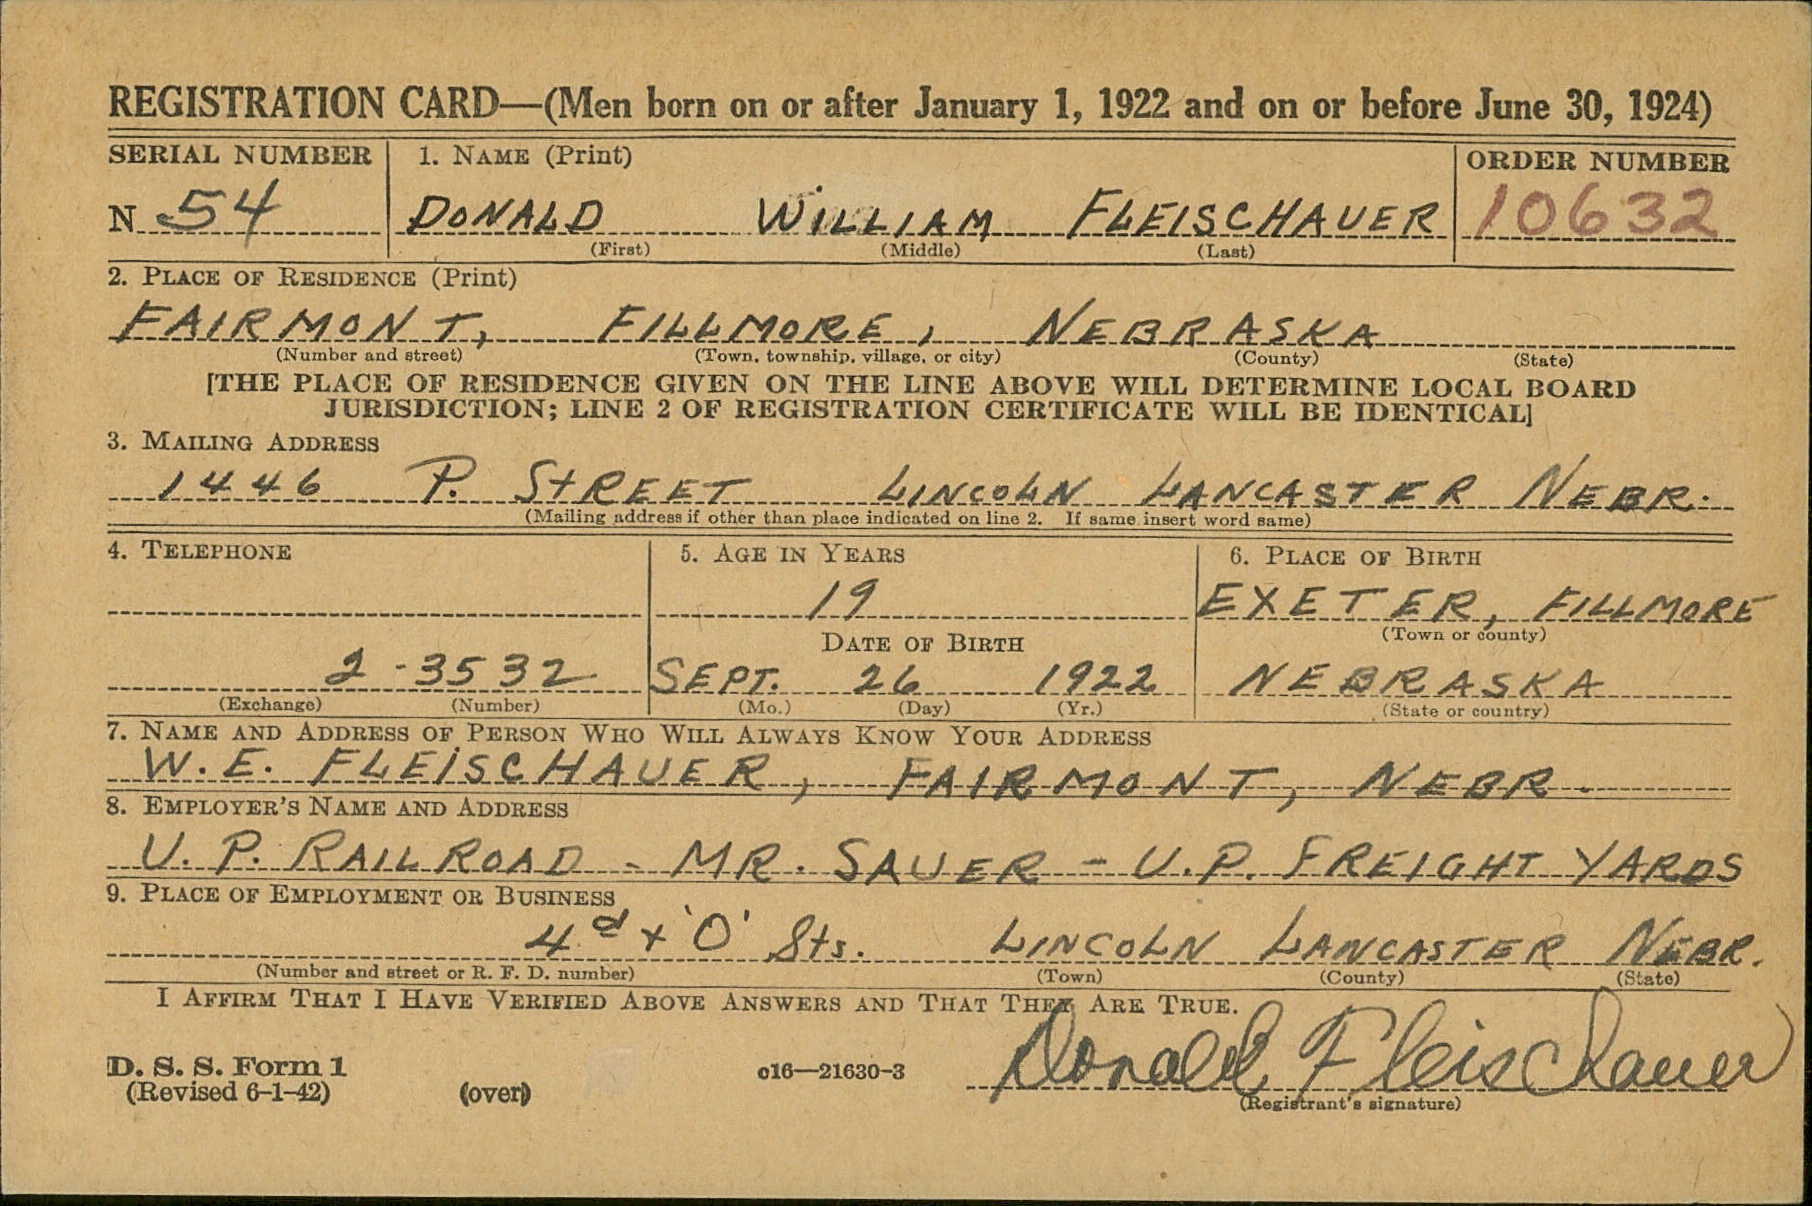 REGISTRATION CARD—(Men born on or after January 1, 1922 and on or before June 30, 1924)
SERIAL NUMBER 1. NAME (Print) ORDER NUMBER
N 54 DONALD WILLIAM FLEISCHAUER 10632
(First) (Middle) (Last)
2. PLACE OF RESIDENCE (Print)
FAIRMONT, FILLMORE, NEBRASKA
(Number and street) (Town, township, village, or city) (County) (State)
[THE PLACE OF RESIDENCE GIVEN ON THE LINE ABOVE WILL DETERMINE LOCAL BOARD
JURISDICTION; LINE 2 OF REGISTRATION CERTIFICATE WILL BE IDENTICAL]
3. MAILING ADDRESS
1446 P. STREET LINCOLN LANCASTER NEBR.
(Mailing address if other than place indicated on line 2. If same insert word same)
4. TELEPHONE 5. AGE IN YEARS 6. PLACE OF BIRTH
19 EXETER, FILLMORE
DATE OF BIRTH (Town or county)
2-3532 SEPT. 26 1922 NEBRASKA
(Exchange) (Number) (Mo.) (Day) (Yr.) (State or country)
7. NAME AND ADDRESS OF PERSON WHO WILL ALWAYS KNOW YOUR ADDRESS
W. E. FLEISCHAUER, FAIRMONT, NEBR.
8. EMPLOYER'S NAME AND ADDRESS
U. P. RAILROAD - MR. SAUER - U.P. FREIGHT YARDS
9. PLACE OF EMPLOYMENT OR BUSINESS
4d + 'O' Sts. LINCOLN LANCASTER NEBR.
(Number and street or R. F. D. number) (Town) (County) (State)
I AFFIRM THAT I HAVE VERIFIED ABOVE ANSWERS AND THAT THEY ARE TRUE.
D. S. S. Form 1
(Revised 6-1-42) (over) c16—21630-3 Donald Fleischauer
(Registrant's signature)